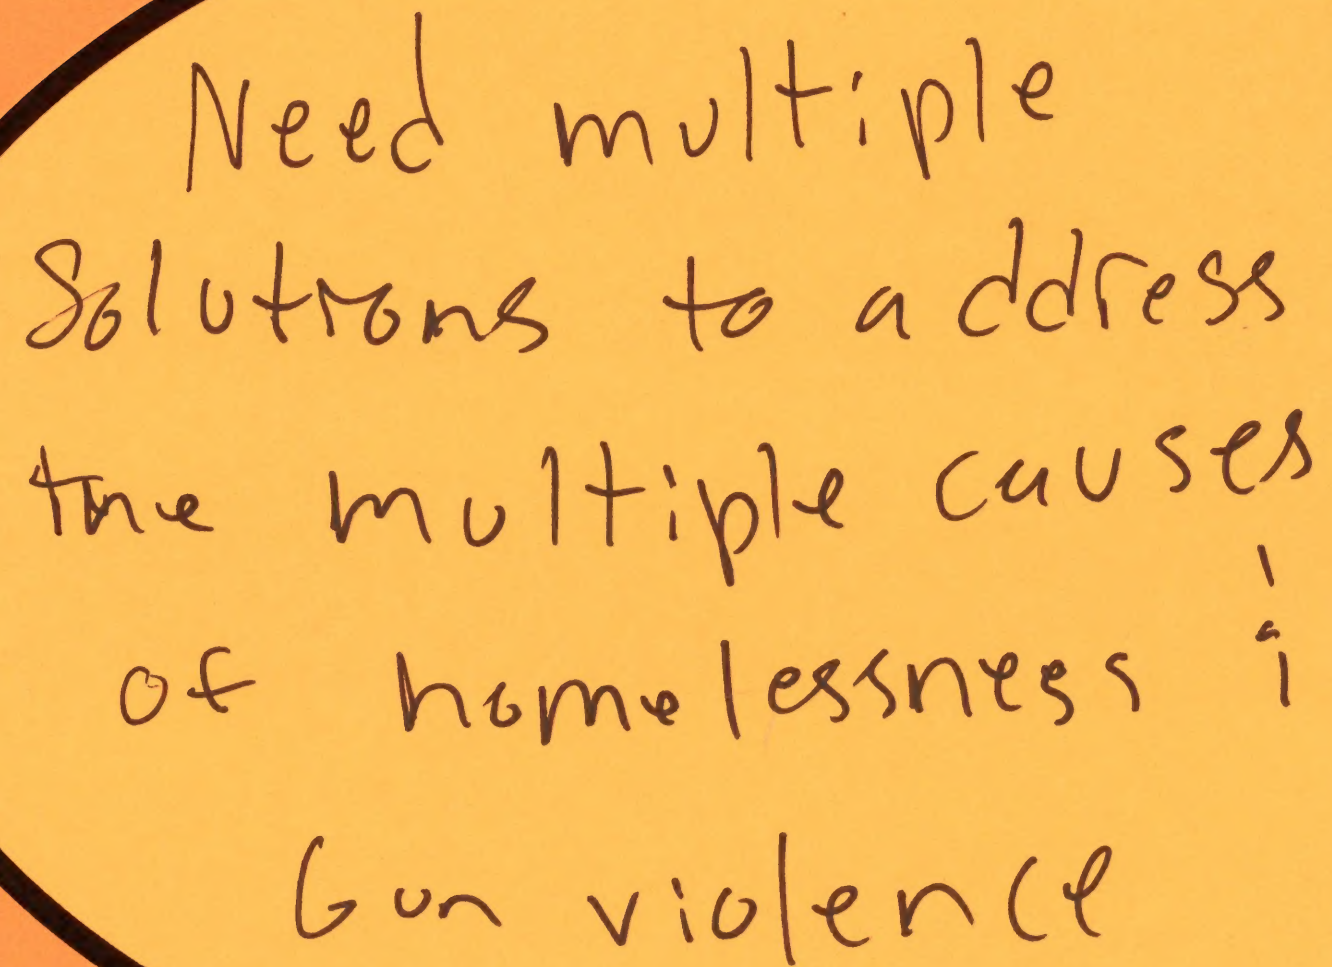 Need multiple
Solutions to address
the multiple causes
of homelessness &
Gun violence